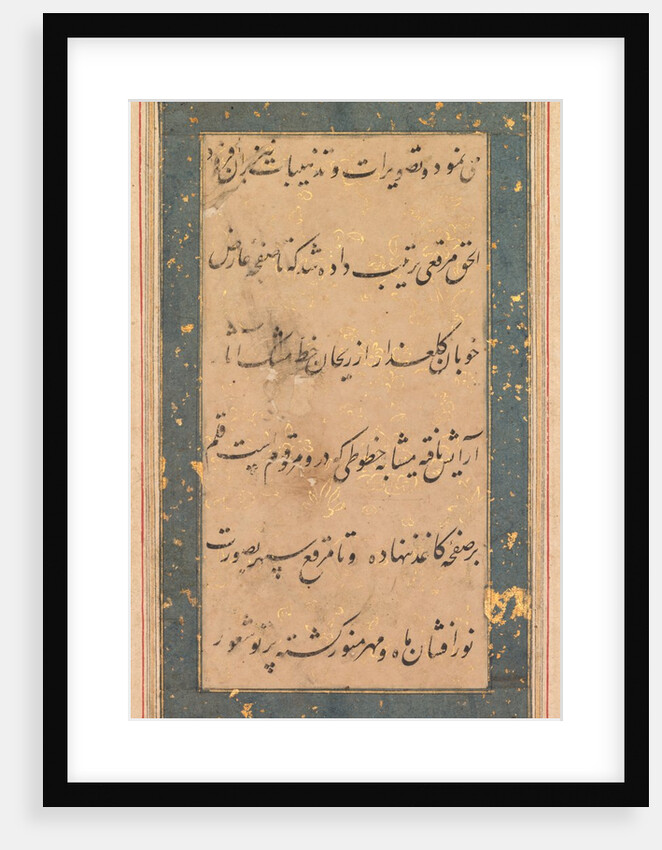 می نمود و تصویرات و تذهیبات نیز بران افزود
الحق مرقعی ترتیب داده شد که تا صفحهٔ عارض
خوبان گلعذار از ریحان خط مشک آسا
آرایش یافته مشابه خطوطی که در و مرقوم است قلم
بر صفحهٔ کاغذ نهاده و تا مرقع سپهر بصورت
نور افشان ماه و مهر منور گشته پرتو شعور